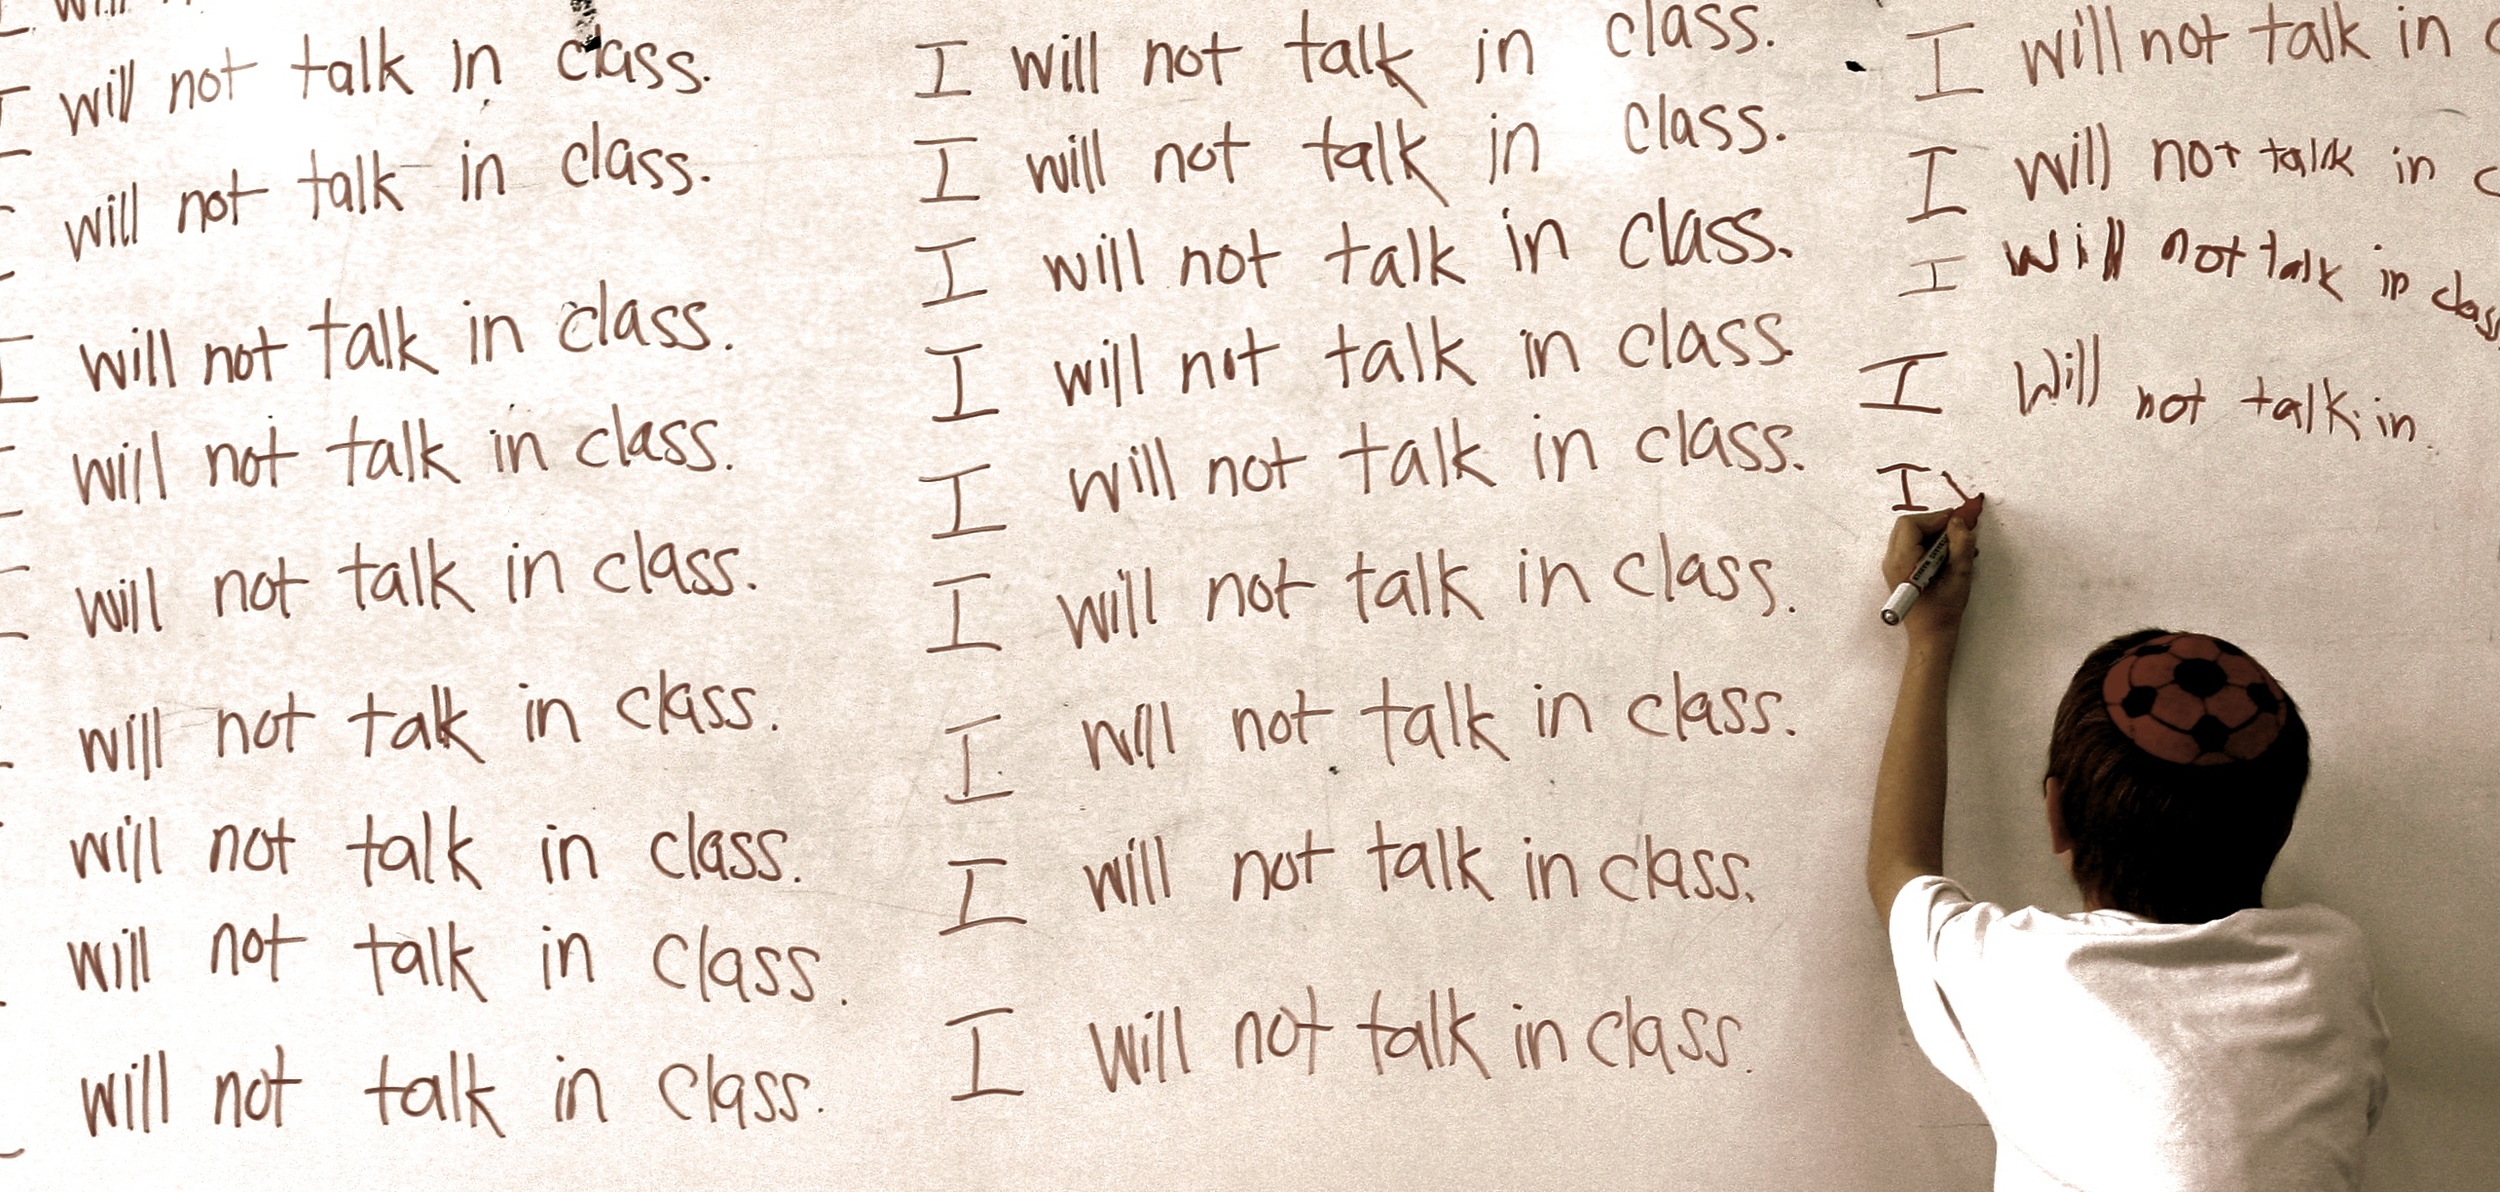 will
I will not talk in class.
will not talk in class.
I will not talk in class.
will not talk in class.
will not talk in class.
will not talk in class.
will not talk in class.
will not talk in class.
will not talk in class.
I will not talk in class.
I will not talk in class.
I will not talk in class.
I will not talk in class.
I will not talk in class.
I will not talk in class.
I will not talk in class.
I will not talk in class.
I will not talk in class.
I will not talk in
I will not talk in
I will not talk in class
I will not talk in.
I